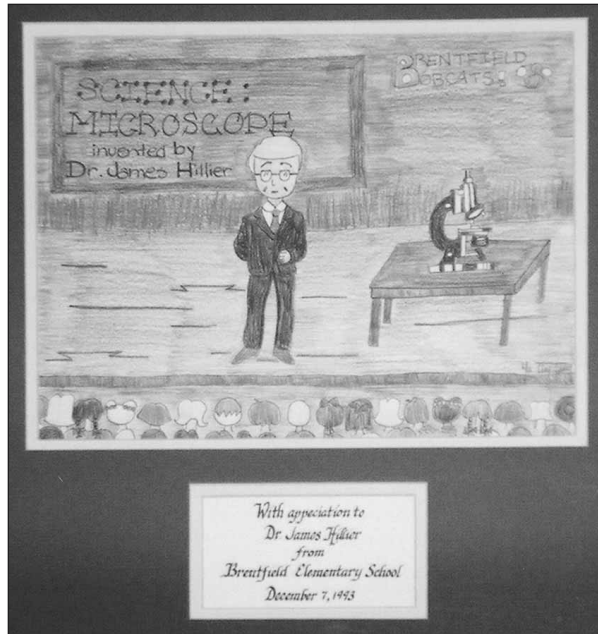 SCIENCE:
MICROSCOPE
invented by
Dr. James Hillier
BRENTFIELD
BOBCATS!
With appeciation to
Dr. James Hillier
from
Brentfield Elementary School
December 7, 1993